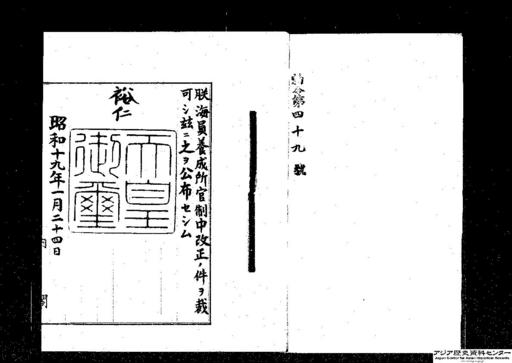 勅令第四十九號
朕海員養成所官制中改正ノ件ヲ裁
可シ玆ニ之ヲ公布セシム
裕仁
天皇御璽
昭和十九年一月二十四日
内閣
アジア歴史資料センター
Japan Center for Asian Historical Records